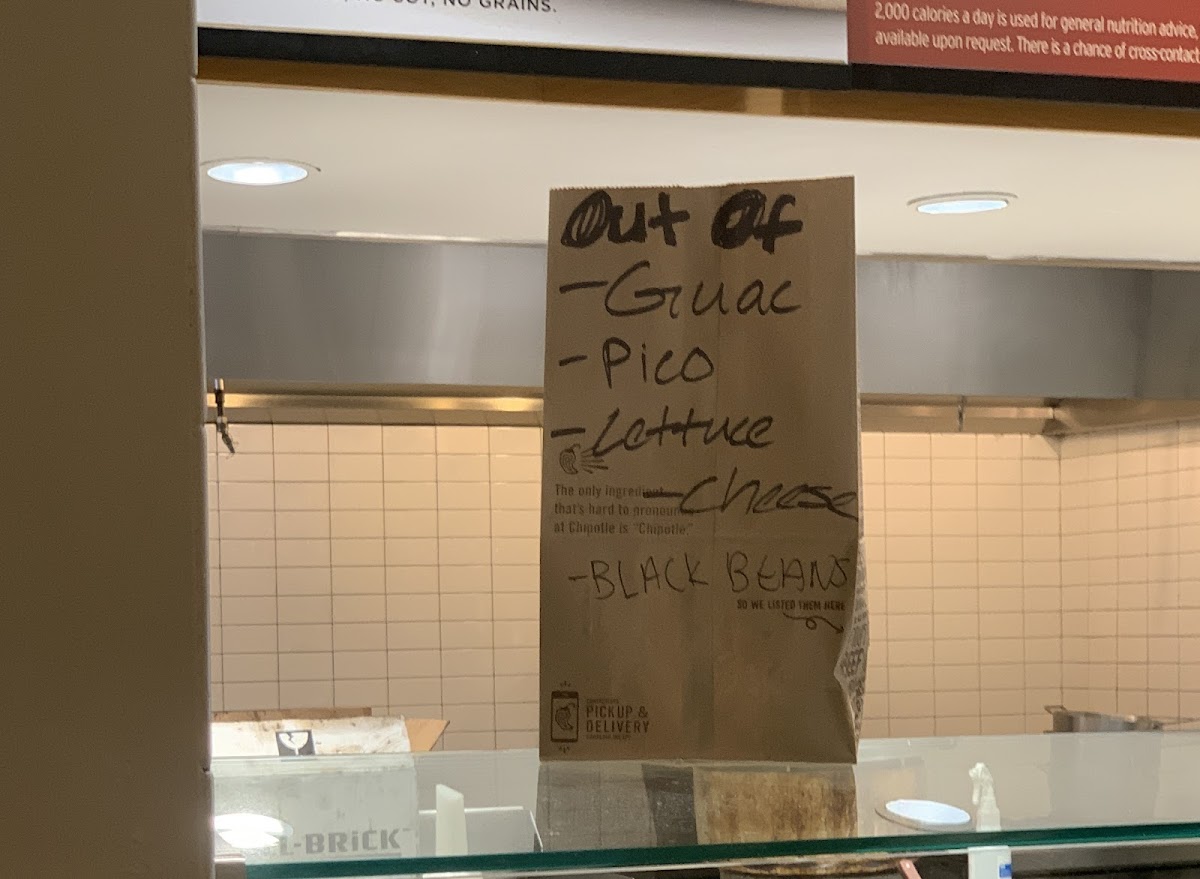 NO GRAINS.
2,000 calories a day is used for general nutrition advice,
available upon request. There is a chance of cross-contact
Out Of
-Guac
-Pico
-Lettuce
-Cheese
The only
that's hard to
at Chipotle is "Chipotle."
-BLACK BEANS
SO WE LISTED THEM HERE
PICKUP &
DELIVERY
L-BRiCK